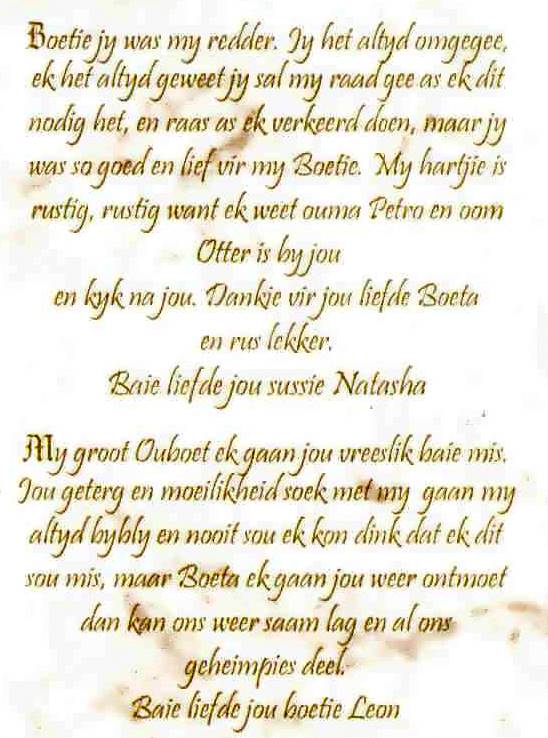 Boetie jy was my redder. Jy het altyd omgegee,
ek het altyd geweet jy sal my raad gee as ek dit
nodig het, en raas as ek verkeerd doen, maar jy
was so goed en lief vir my Boetie. My hartjie is
rustig, rustig want ek weet ouma Petro en oom
Otter is by jou
en kyk na jou. Dankie vir jou liefde Boeta
en rus lekker.
Baie liefde jou sussie Natasha
My groot Ouboet ek gaan jou vreeslik baie mis.
Jou geterg en moeilikheid soek met my gaan my
altyd bybly en nooit sou ek kon dink dat ek dit
sou mis, maar Boeta ek gaan jou weer ontmoet
dan kan ons weer saam lag en al ons
geheimpies deel.
Baie liefde jou boetie Leon